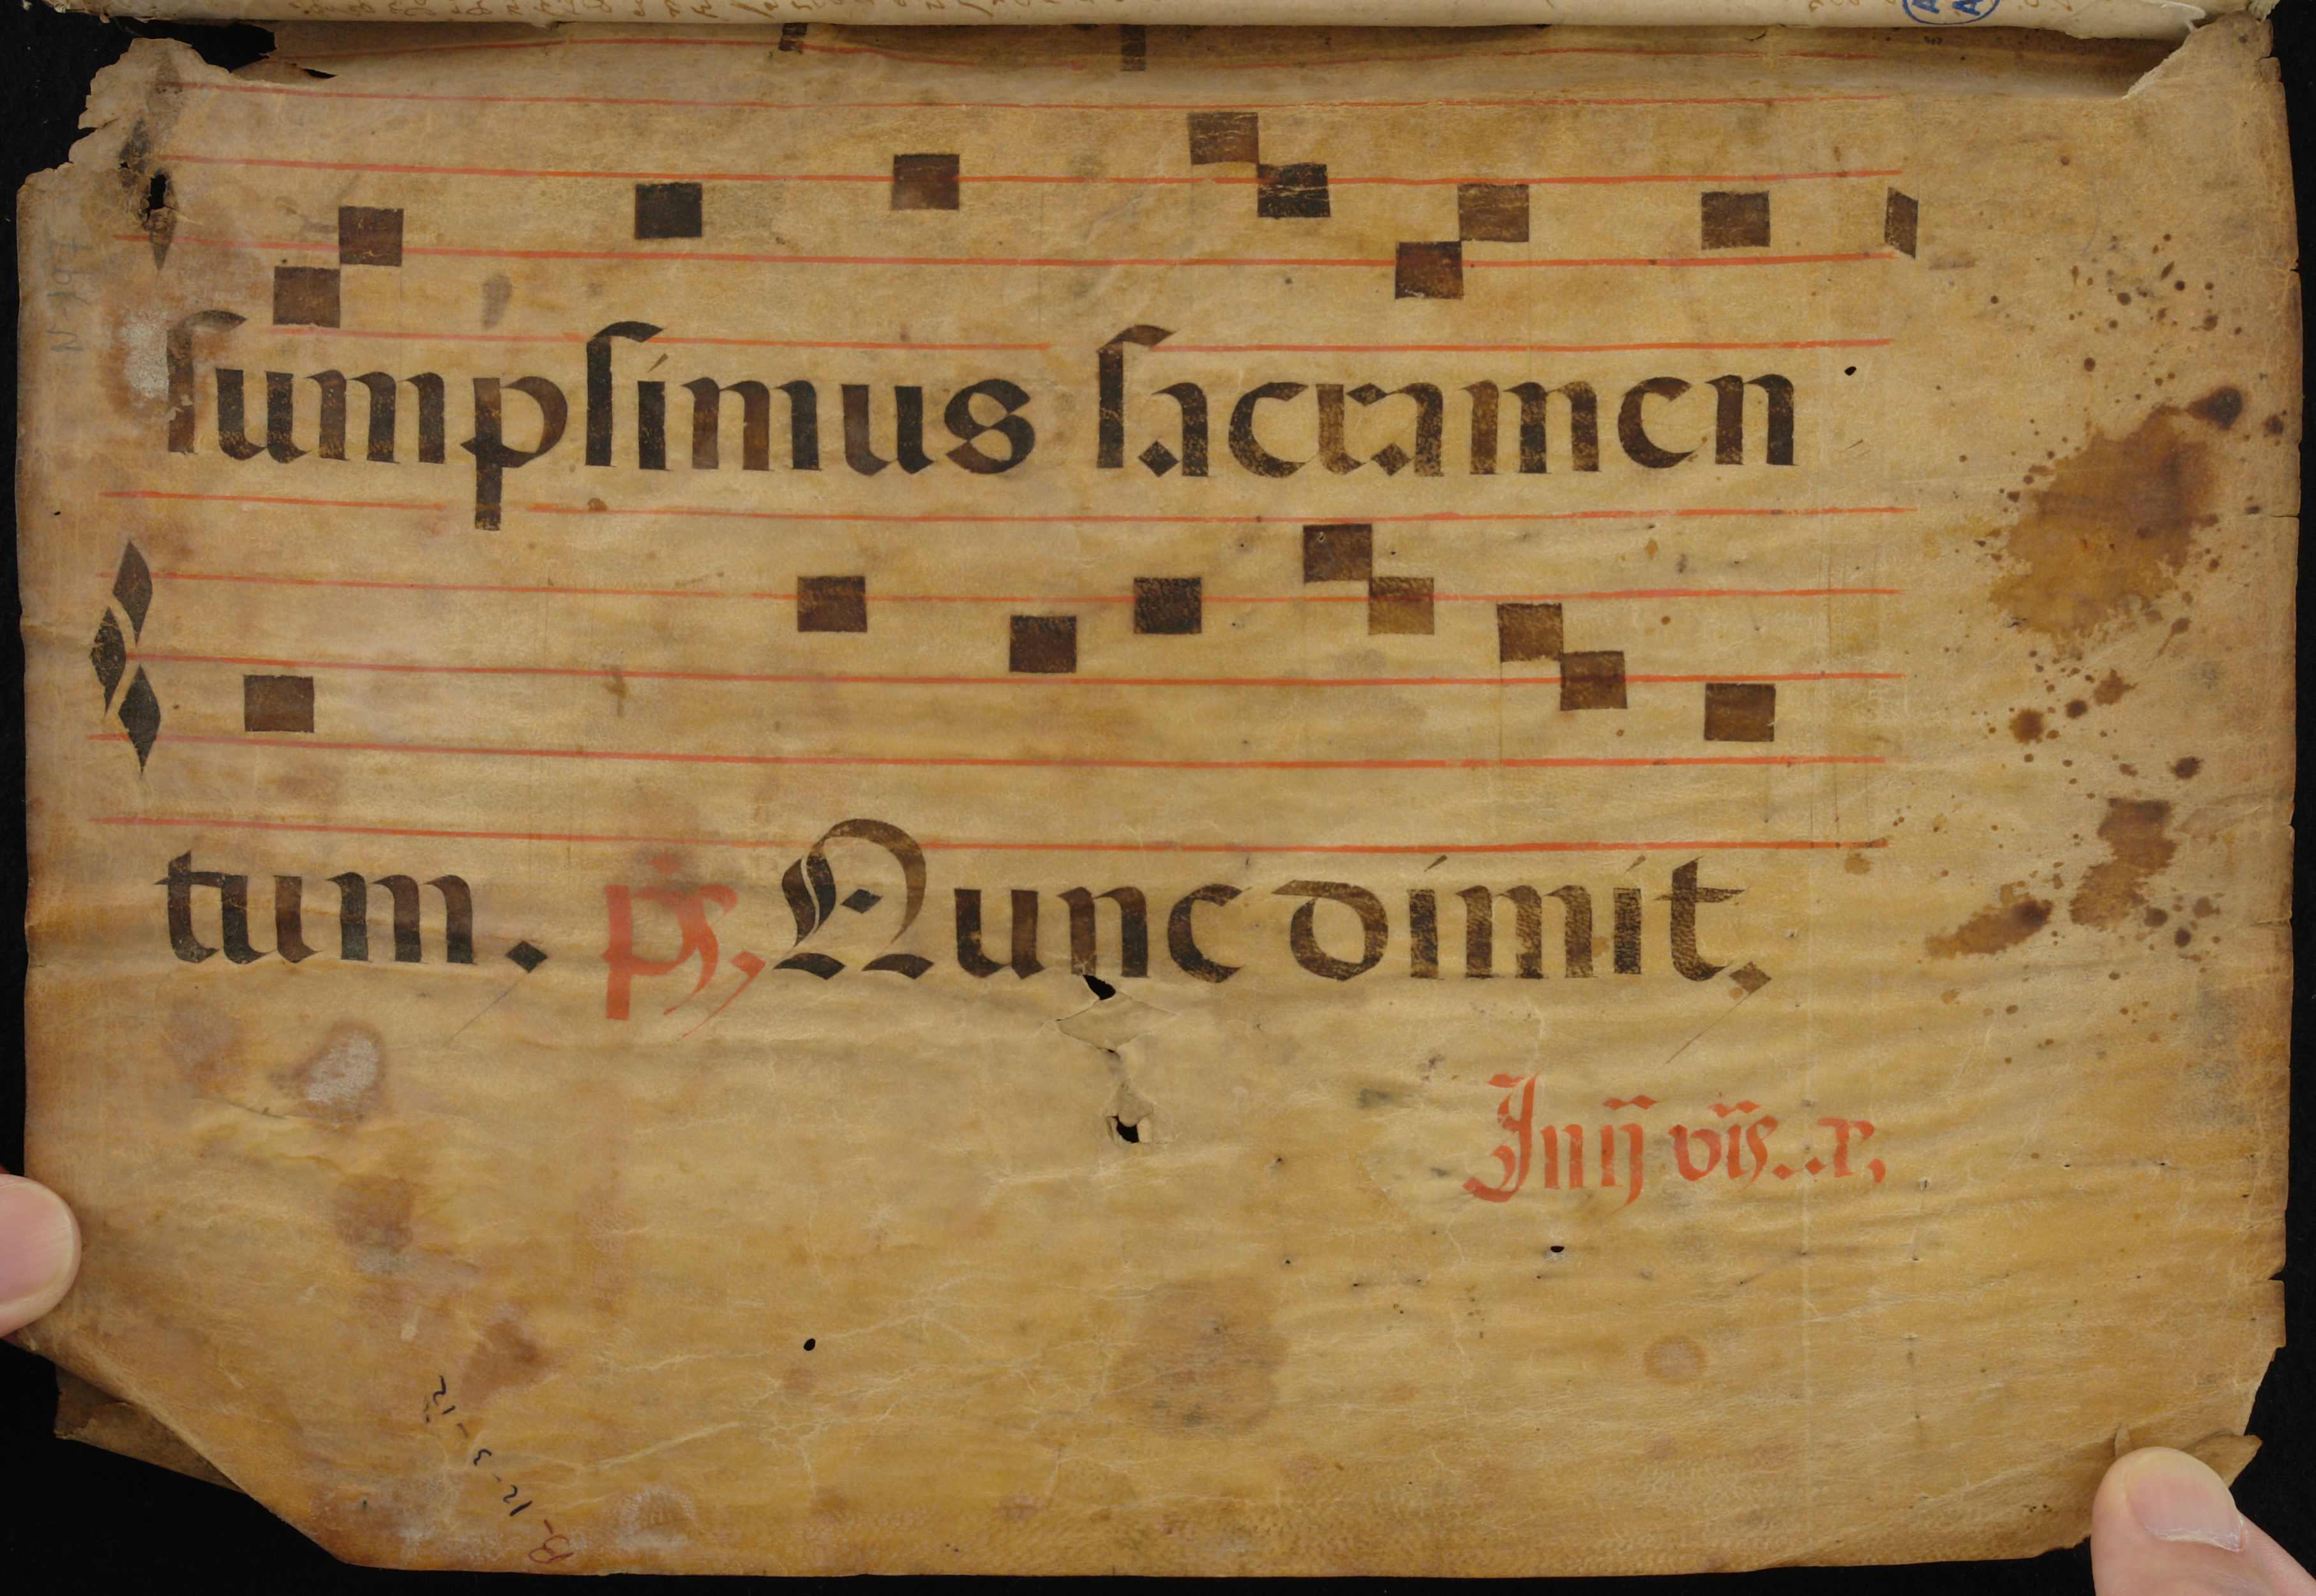 sumpsimus sacramen
tum. ps, Nunc dimit,
In ij vis..r,
N-197
B-12-3-12